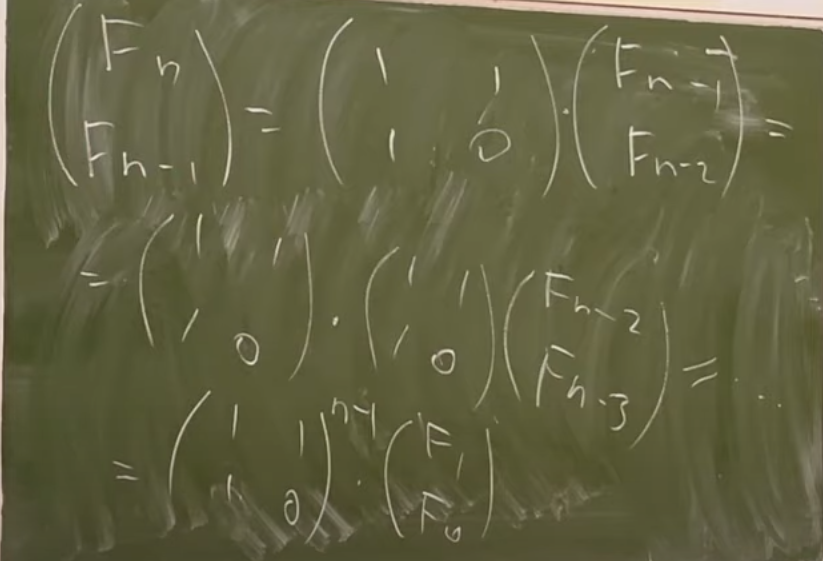 (F_n; F_{n-1}) = (1 1; 1 0) · (F_{n-1}; F_{n-2}) =
= (1 1; 1 0) · (1 1; 1 0) (F_{n-2}; F_{n-3}) = ...
= (1 1; 1 0)^{n-1} · (F_1; F_0)